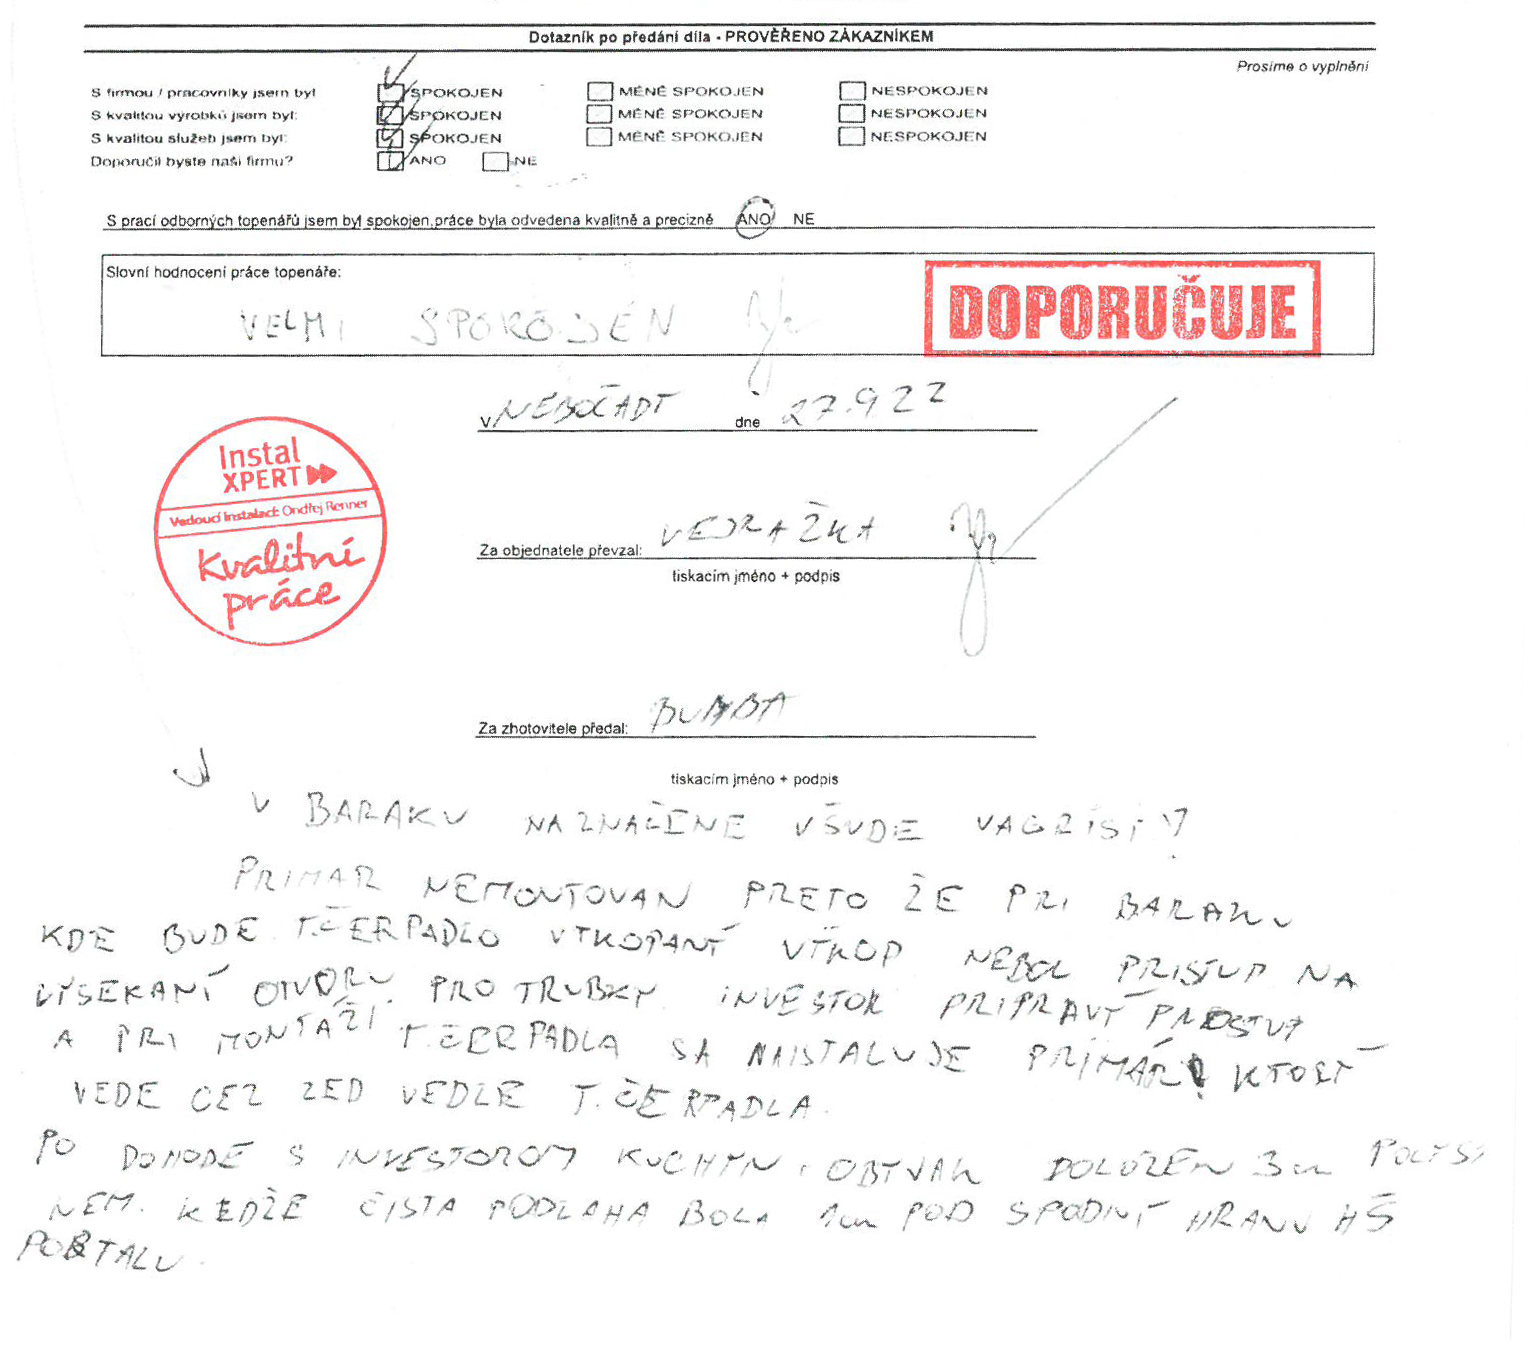 Dotazník po předání díla - PROVĚŘENO ZÁKAZNÍKEM
Prosíme o vyplnění
S firmou / pracovníky jsem byl SPOKOJEN MÉNĚ SPOKOJEN NESPOKOJEN
S kvalitou výrobků jsem byl: SPOKOJEN MÉNĚ SPOKOJEN NESPOKOJEN
S kvalitou služeb jsem byl: SPOKOJEN MÉNĚ SPOKOJEN NESPOKOJEN
Doporučil byste naši firmu? ANO NE
S prací odborných topenářů jsem byl spokojen,práce byla odvedena kvalitně a precizně ANO NE
Slovní hodnocení práce topenáře:
VELMI SPOKOJEN
DOPORUČUJE
V NEBOČADY dne 27.9 22
Instal
XPERT
Vedoucí instalací: Ondřej Renner
Kvalitní
práce
Za objednatele převzal: VEJRAŽKA
tiskacím jméno + podpis
Za zhotovitele předal: BUMBA
tiskacím jméno + podpis
V BARAKU NAZNAČENE VŠUDE VAGRISY
PRIMAR NEMONTOVAN PRETO ŽE PRI BARAKU
KDE BUDE T.ČERPADLO VYKOPANÝ VÝKOP NEBOL PRISTUP NA
VÝSEKANÍ OTVORU PRO TRUBKY. INVESTOR PRIPRAVÝ PROSTUP
A PRI MONTÁŽI T.ČERPADLA SA NAISTALUJE PRIMÁR KTORÝ
VEDE CEZ ZED VEDLE T.ČERPADLA.
PO DOHODE S INVESTOROM KUCHYN, OBYVAK DOLOŽEN 3cm POLYSTY
NEM. KEDŽE ČISTA PODLAHA BOLA 1cm POD SPODNÝ HRANU HŠ
PORTALU.